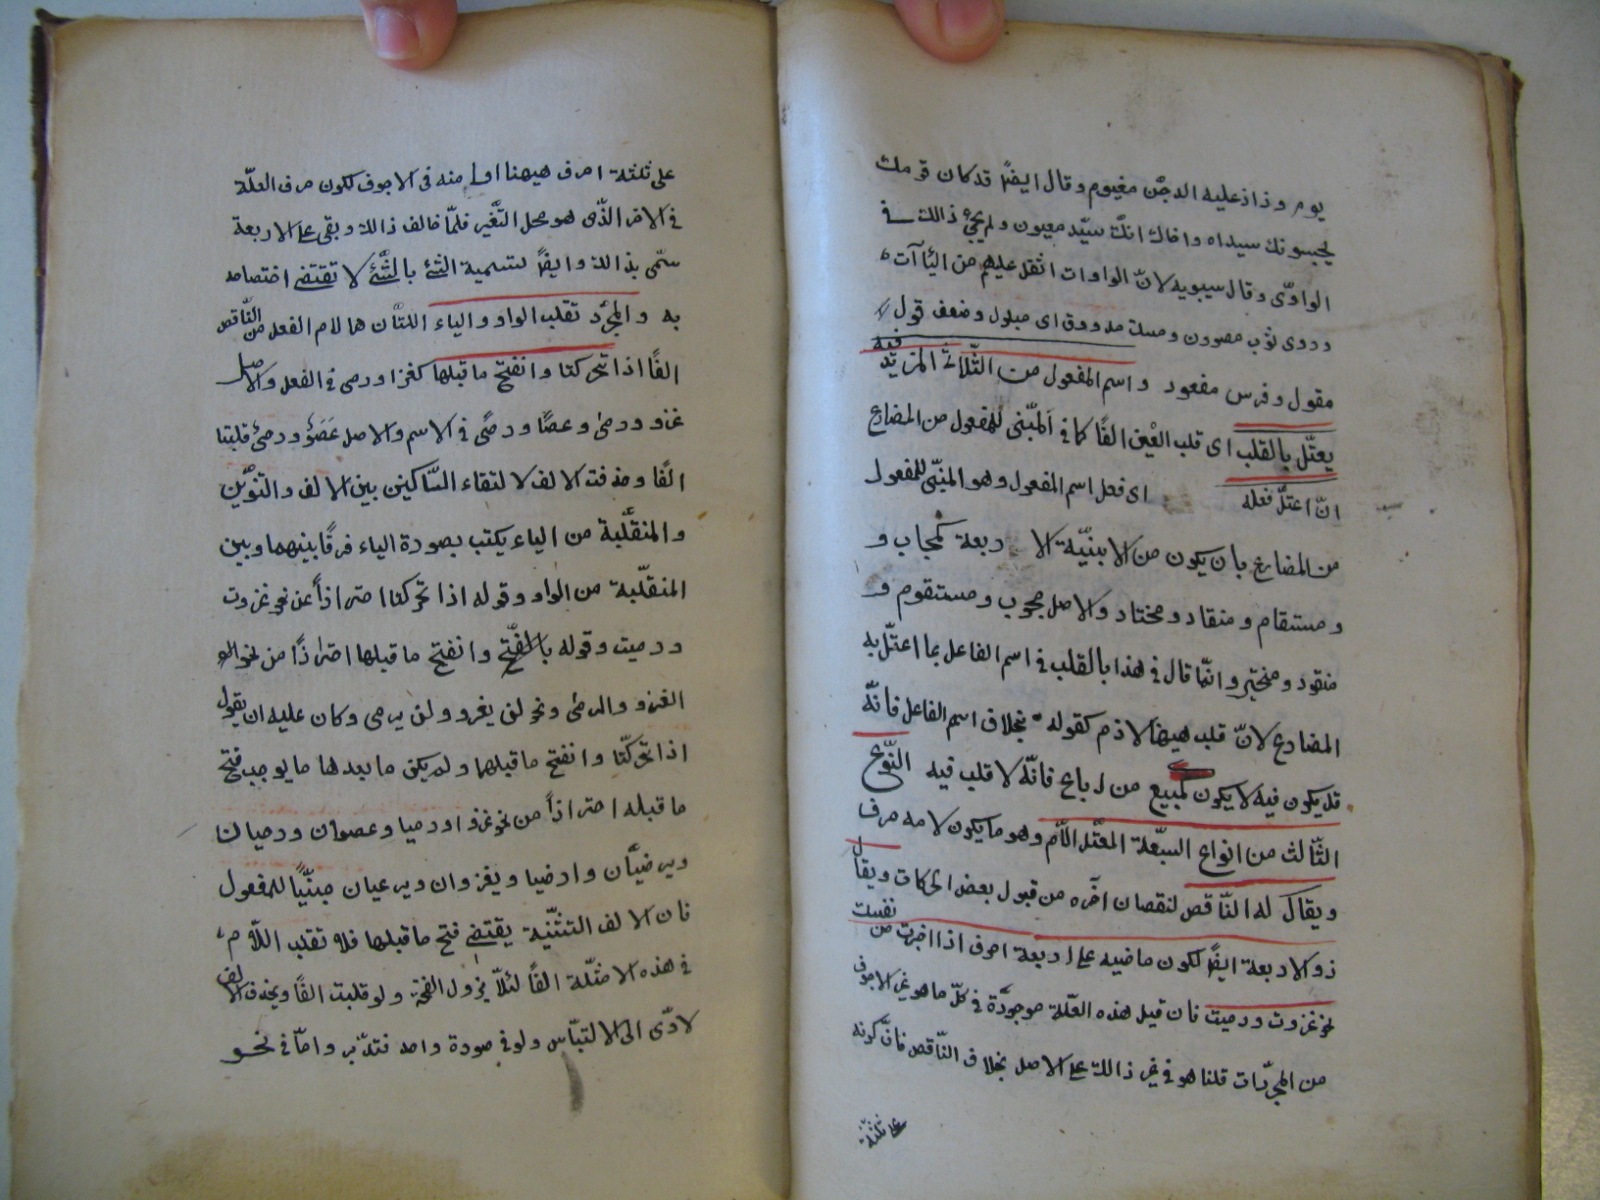 يوم رذاذ عليه الدجن مغيوم وقال ايضا قد كان قومك
يحبسونك سيداه واخاك انك سيد معيون ولم يجئ ذالك في
الواوى وقال سيبويه لانّ الواوات اثقل عليهم من اليآآت
وروى ثوب مصوون ومسك مدووف اى مبلول وضعف قول
مقول وفرس مقعود واسم المفعول من الثّلاثى المزيد فيه
يعتّل بالقلب اى قلب العين الفًا كما في المبنى للمفعول من المضارع
انّ اعتلّ فعله اى فعل اسم المفعول وهو المبنّى للمفعول
من المضارع بان يكون من الابنّية الاربعة كمجاب و
ومستقام ومنقاد ومختار والاصل مجوب ومستقوم و
منقود ومختير وانّما قال في هذا بالقلب في اسم الفاعل بما اعتلّ به
المضارع لانّ قلب هيهنا لازم كقوله بخلاف اسم الفاعل فانّه
قد يكون فيه لا يكون كمبيع من اباع فانّه لا قلب فيه النّوع
الثّالث من انواع السبّعة المعتّل اللّام وهو ما يكون لامه حرف
ويقال له النّاقص لنقصان آخره من قبول بعض الحركات ويقال
ذو الاربعة ايضًا لكون ماضيه على اربعة احرف اذا اخبرت من نفسك
نحو غزوت ورميت فان قيل هذه العّلة موجودّة في كلّ ما هو غير الاجوف
من المجرّدات قلنا هو في غير ذالك على الاصل بخلاف النّاقص فانّ كونه
على ثلثة
على ثلثة احرف هيهنا اولى منه في الاجوف لكون حرف العلّة
في الاخر الذّى هو محل التّغير فلمّا خالف ذالك وبقى على الاربعة
سمّى بذالك وايضًا تسمية الشئ بالشّئ لا تقتضى اختصاصه
به والمجرّد تقلب الواو والياء اللتّان هما لام الفعل من النّاقص
الفًا اذا تحركتا وانفتح ما قبلها كغزا ورمى في الفعل والاصل
غزو ورمى وعصًا ورحًى في الاسم والاصل عَصَوٌ ورحىٌ قلبتا
الفًا وحذفت الالف لالتقاء السّاكنين بين الالف والتنوّين
والمنقلّبة من الياء يكتب بصورة الياء فرقًا بينهما وبين
المنقلّبة من الواو وقوله اذا تحركتا احترازاً عن نحو غزوت
ورميت وقوله بالفّتح وانفتح ما قبلها احترازًا من نحو
الغزو والرمى ونحو لن يغزو ولن يرمى وكان عليه ان يقول
اذا تحركتّا وانفتح ما قبلهما ولم يكن ما بعدها ما يوجب فتح
ما قبله احترازاً من نحو غزوا ورميا وعصوان ورحيان
ويرضيّان وارضيا ويغزوان ويرعيان مبنّيًا للمفعول
فان الالف التثنّية يقتضى فتح ما قبلها فلا تقلب اللّام
في هذه الامثلّة الفًا لئلّا يزول الفتحة ولو قلبت الفًا ويحذف الالف
لادّى الى الالتبّاس ولو في صورة واحد فتدّبر وامّا في نحو